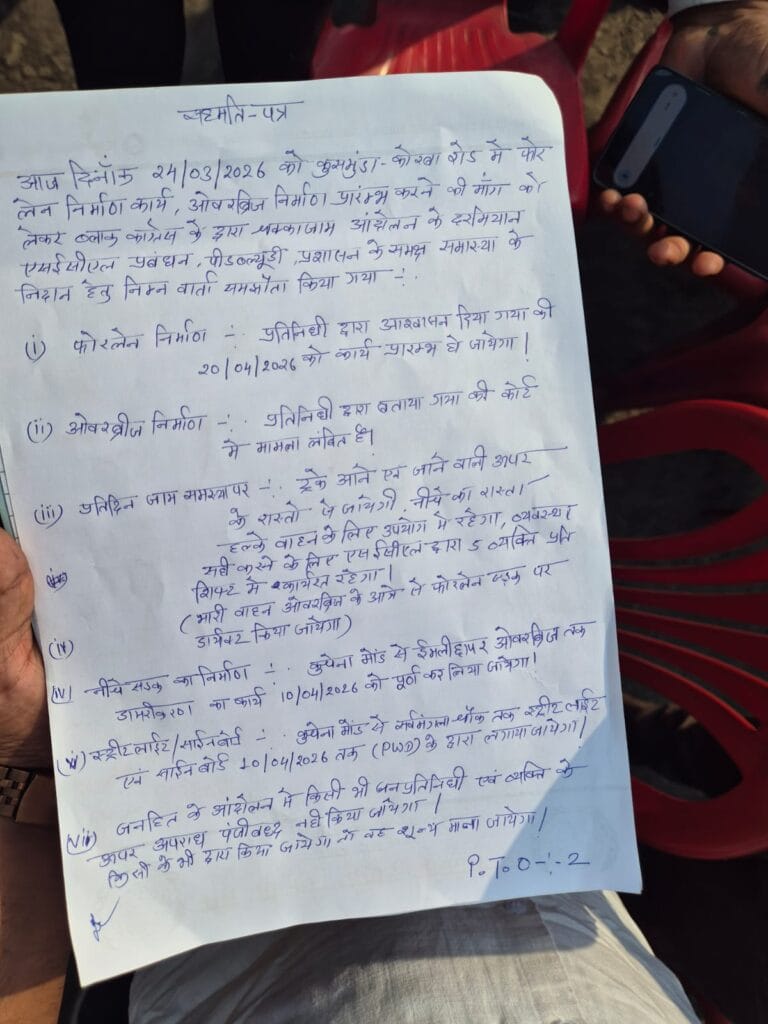 सहमति-पत्र
आज दिनाँक 24/03/2026 को कुसमुंडा-कोरबा रोड मे फोर
लेन निर्माण कार्य, ओवरब्रिज निर्माण प्रारम्भ करने की माँग को
लेकर ब्लाक कांग्रेस के द्वारा चक्काजाम आंदोलन के दरमियान
एसईसीएल प्रबंधन, पीडब्ल्यूडी, प्रशासन के समक्ष समास्या के
निदान हेतु निम्न वार्ता समझौता किया गया -:.
(i) फोरलेन निर्माण -:. प्रतिनिधी द्वारा आश्वासन दिया गया की
20/04/2026 को कार्य प्रारम्भ हो जायेगा।
(ii) ओवरब्रीज निर्माण -:. प्रतिनिधी द्वारा बताया गया की कोर्ट
मे मामला लंबित है।
(iii) प्रतिदिन जाम समस्या पर -:. ट्रके आने एवं जाने वाली ऊपर
के रास्तो से जायेगी, नीचे का रास्ता
हल्के वाहन के लिए उपयोग मे रहेगा, व्यवस्था
सही करने के लिए एसईसीएल द्वारा 5 व्यक्ति प्रति
शिफ्ट मे कार्यरत रहेगा।
(भारी वाहन ओवरब्रिज के आगे से फोरलेन सड़क पर
डायवर्ट किया जायेगा)
(iv)
(iv) नीचे सड़क का निर्माण -:. कुचेना मोंड से ईमलीछापर ओवरब्रिज तक
डामरीकरण का कार्य 10/04/2026 को पूर्ण कर लिया जायेगा।
(v) स्ट्रीट लाईट/साईन बोर्ड -:. कुचेना मोंड से सर्वमंगला चौक तक स्ट्रीट लाईट
एवं साईन बोर्ड 10/04/2026 तक (PWD) के द्वारा लगाया जायेगा।
(vii) जनहित के आंदोलन मे किसी भी जनप्रतिनिधी एवं व्यक्ति के
ऊपर अपराध पंजीबध्द नही किया जायेगा।
किसी के भी द्वारा किया जायेगा तो वह शून्य माना जायेगा।
P.T.O-:-2